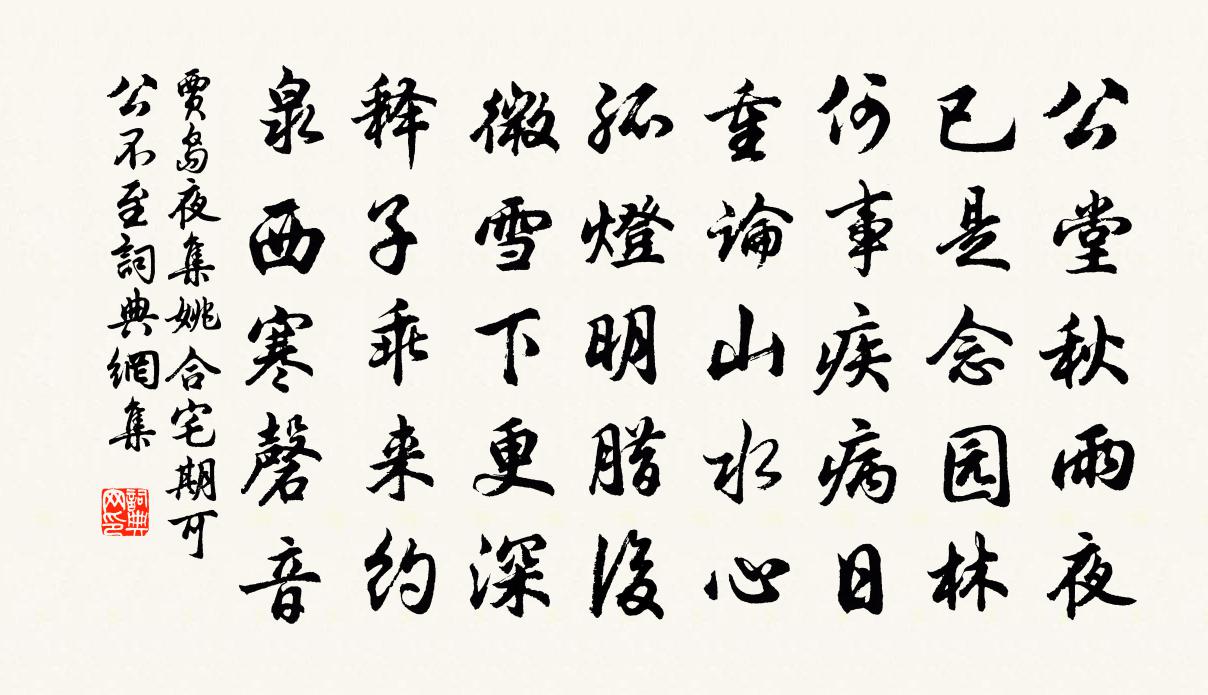 公堂秋雨夜
已是念园林
何事疾病日
重論山水心
孤燈明腊後
微雪下更深
释子乖来约
泉西寒磬音
賈島夜集姚合宅期可
公不至詞典網集
詞典网印